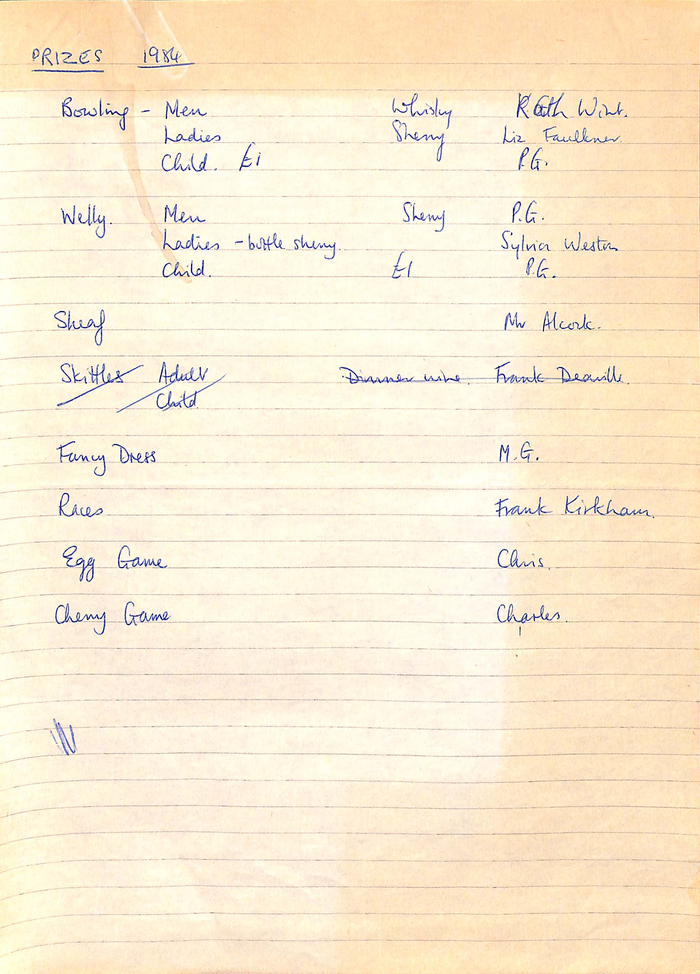 PRIZES 1984
Bowling - Men Whisky Kath Wint.
Ladies Sherry Liz Faulkner.
Child. £1 P.G.
Welly. Men Sherry P.G.
Ladies - bottle sherry. Sylvia Weston
Child. £1 P.G.
Sheaf Mr Alcock.
Skittles Adult Dinner wine. Frank Deaville.
Child
Fancy Dress M.G.
Races Frank Kirkham.
Egg Game Chris.
Cherry Game Charles.